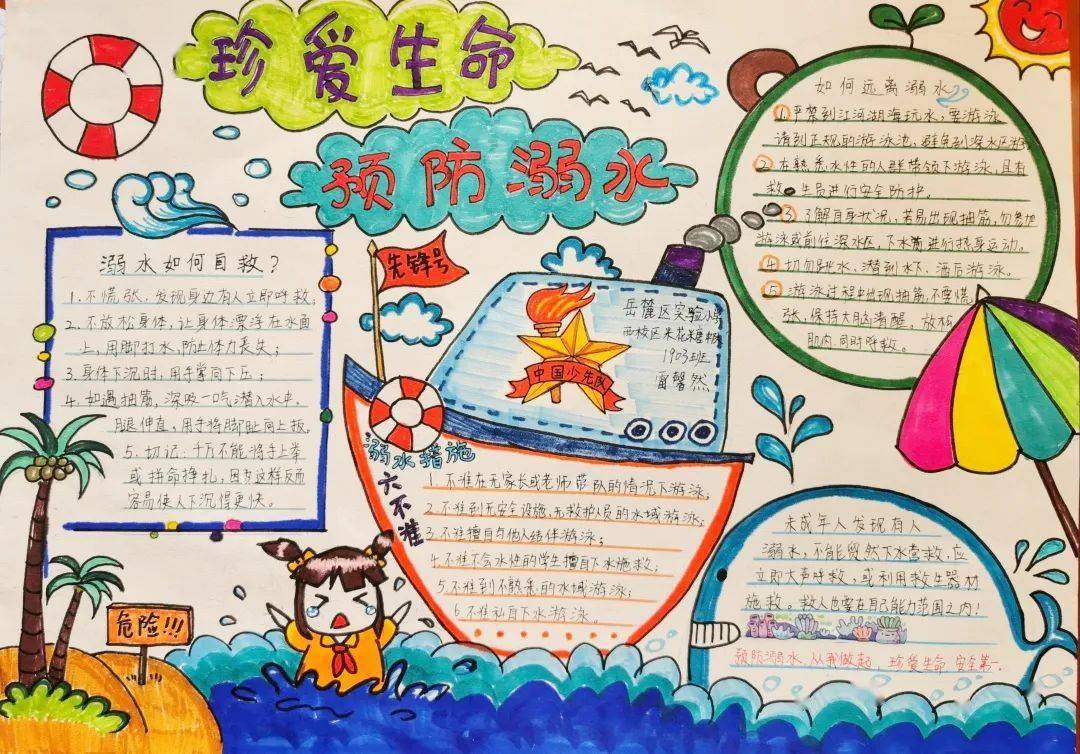 珍爱生命
预防溺水
先锋号
溺水如何自救?
1.不慌张,发现身边有人立即呼救;
2.不放松身体,让身体漂浮在水面
上,用脚打水,防止体力丧失;
3.身体下沉时,用手掌向下压;
4.如遇抽筋,深吸一口气潜入水中,
腿伸直,用手将脚趾向上扳。
5.切记:千万不能将手上举
或拼命挣扎,因为这样反而
容易使人下沉得更快。
危险!!!
中国少先队
岳麓区实验小学
西校区米花糖中队
1903班
雷馨然
溺水措施
六不准
1.不准在无家长或老师带队的情况下游泳;
2.不准到无安全设施、无救护人员的水域游泳;
3.不准擅自与他人结伴游泳;
4.不准不会水性的学生擅自下水施救;
5.不准到不熟悉的水域游泳;
6.不准私自下水游泳。
如何远离溺水
1.严禁到江河湖海玩水,要游泳
请到正规的游泳池,避免到深水区游
2.在熟悉水性的人群带领下游泳,且有
救生员进行安全防护。
3.了解自身状况,若易出现抽筋,勿参加
游泳或前往深水区,下水前进行热身运动。
4.切勿跳水、潜到水下、酒后游泳。
5.游泳过程中出现抽筋,不要慌
张,保持大脑清醒,放松
肌肉,同时呼救。
未成年人发现有人
溺水,不能贸然下水营救,应
立即大声呼救,或利用救生器材
施救。救人也要在自己能力范围之内!
预防溺水,从我做起 珍爱生命 安全第一。